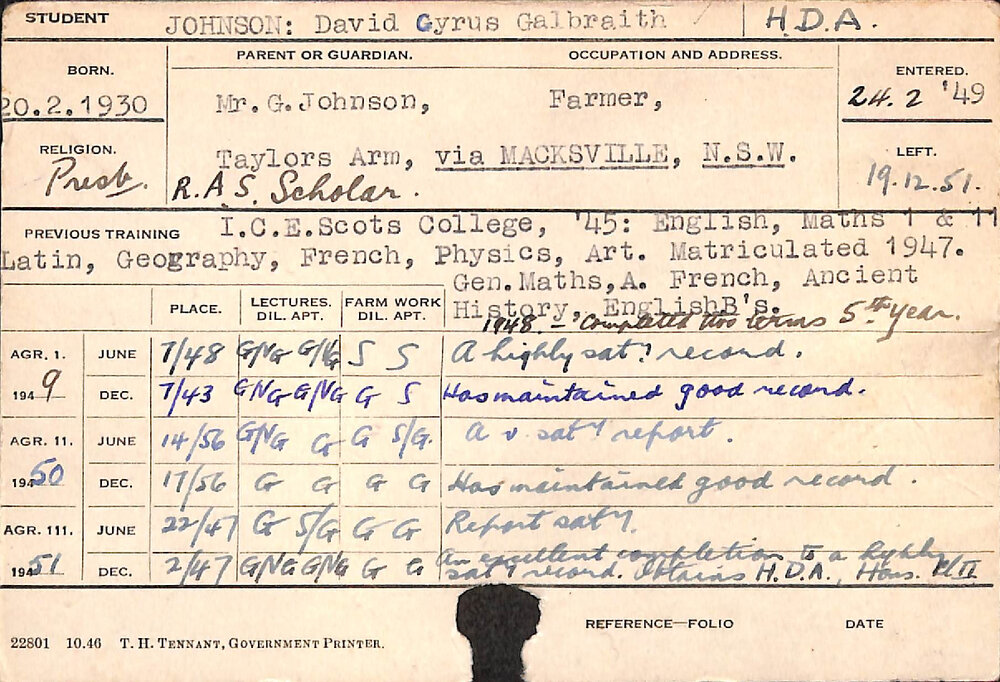 STUDENT JOHNSON: David Cyrus Galbraith H.D.A.
PARENT OR GUARDIAN. OCCUPATION AND ADDRESS.
BORN. ENTERED.
20.2.1930 Mr.G.Johnson, Farmer, 24.2 '49
RELIGION. Taylors Arm, via MACKSVILLE, N.S.W. LEFT.
Presb. R.A.S. Scholar. 19.12.51.
PREVIOUS TRAINING I.C.E.Scots College, '45: English, Maths 1 & 11
Latin, Geography, French, Physics, Art. Matriculated 1947.
Gen.Maths,A. French, Ancient
History, EnglishB's.
1948 - Completed two terms 5th year.
PLACE. LECTURES. DIL. APT. FARM WORK DIL. APT.
AGR. 1. JUNE 7/48 G/VG G/VG S S A highly saty. record.
1949 DEC. 7/43 G/VG G/VG G S Has maintained good record.
AGR. 11. JUNE 14/56 G/VG G G S/G. A v. saty report.
1950 DEC. 17/56 G G G G Has maintained good record.
AGR. 111. JUNE 22/47 G S/G G G Report saty.
1951 DEC. 2/47 G/VG G/VG G G An excellent completion to a highly
saty record. Obtains H.D.A., Hons.
REFERENCE—FOLIO DATE
22801 10.46 T. H. TENNANT, GOVERNMENT PRINTER.